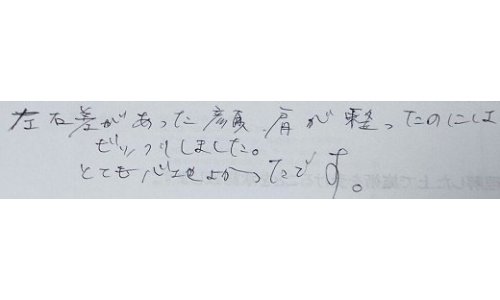 左右差があった顔、肩が整ったのには
ビックリしました。
とても心地よかったです。